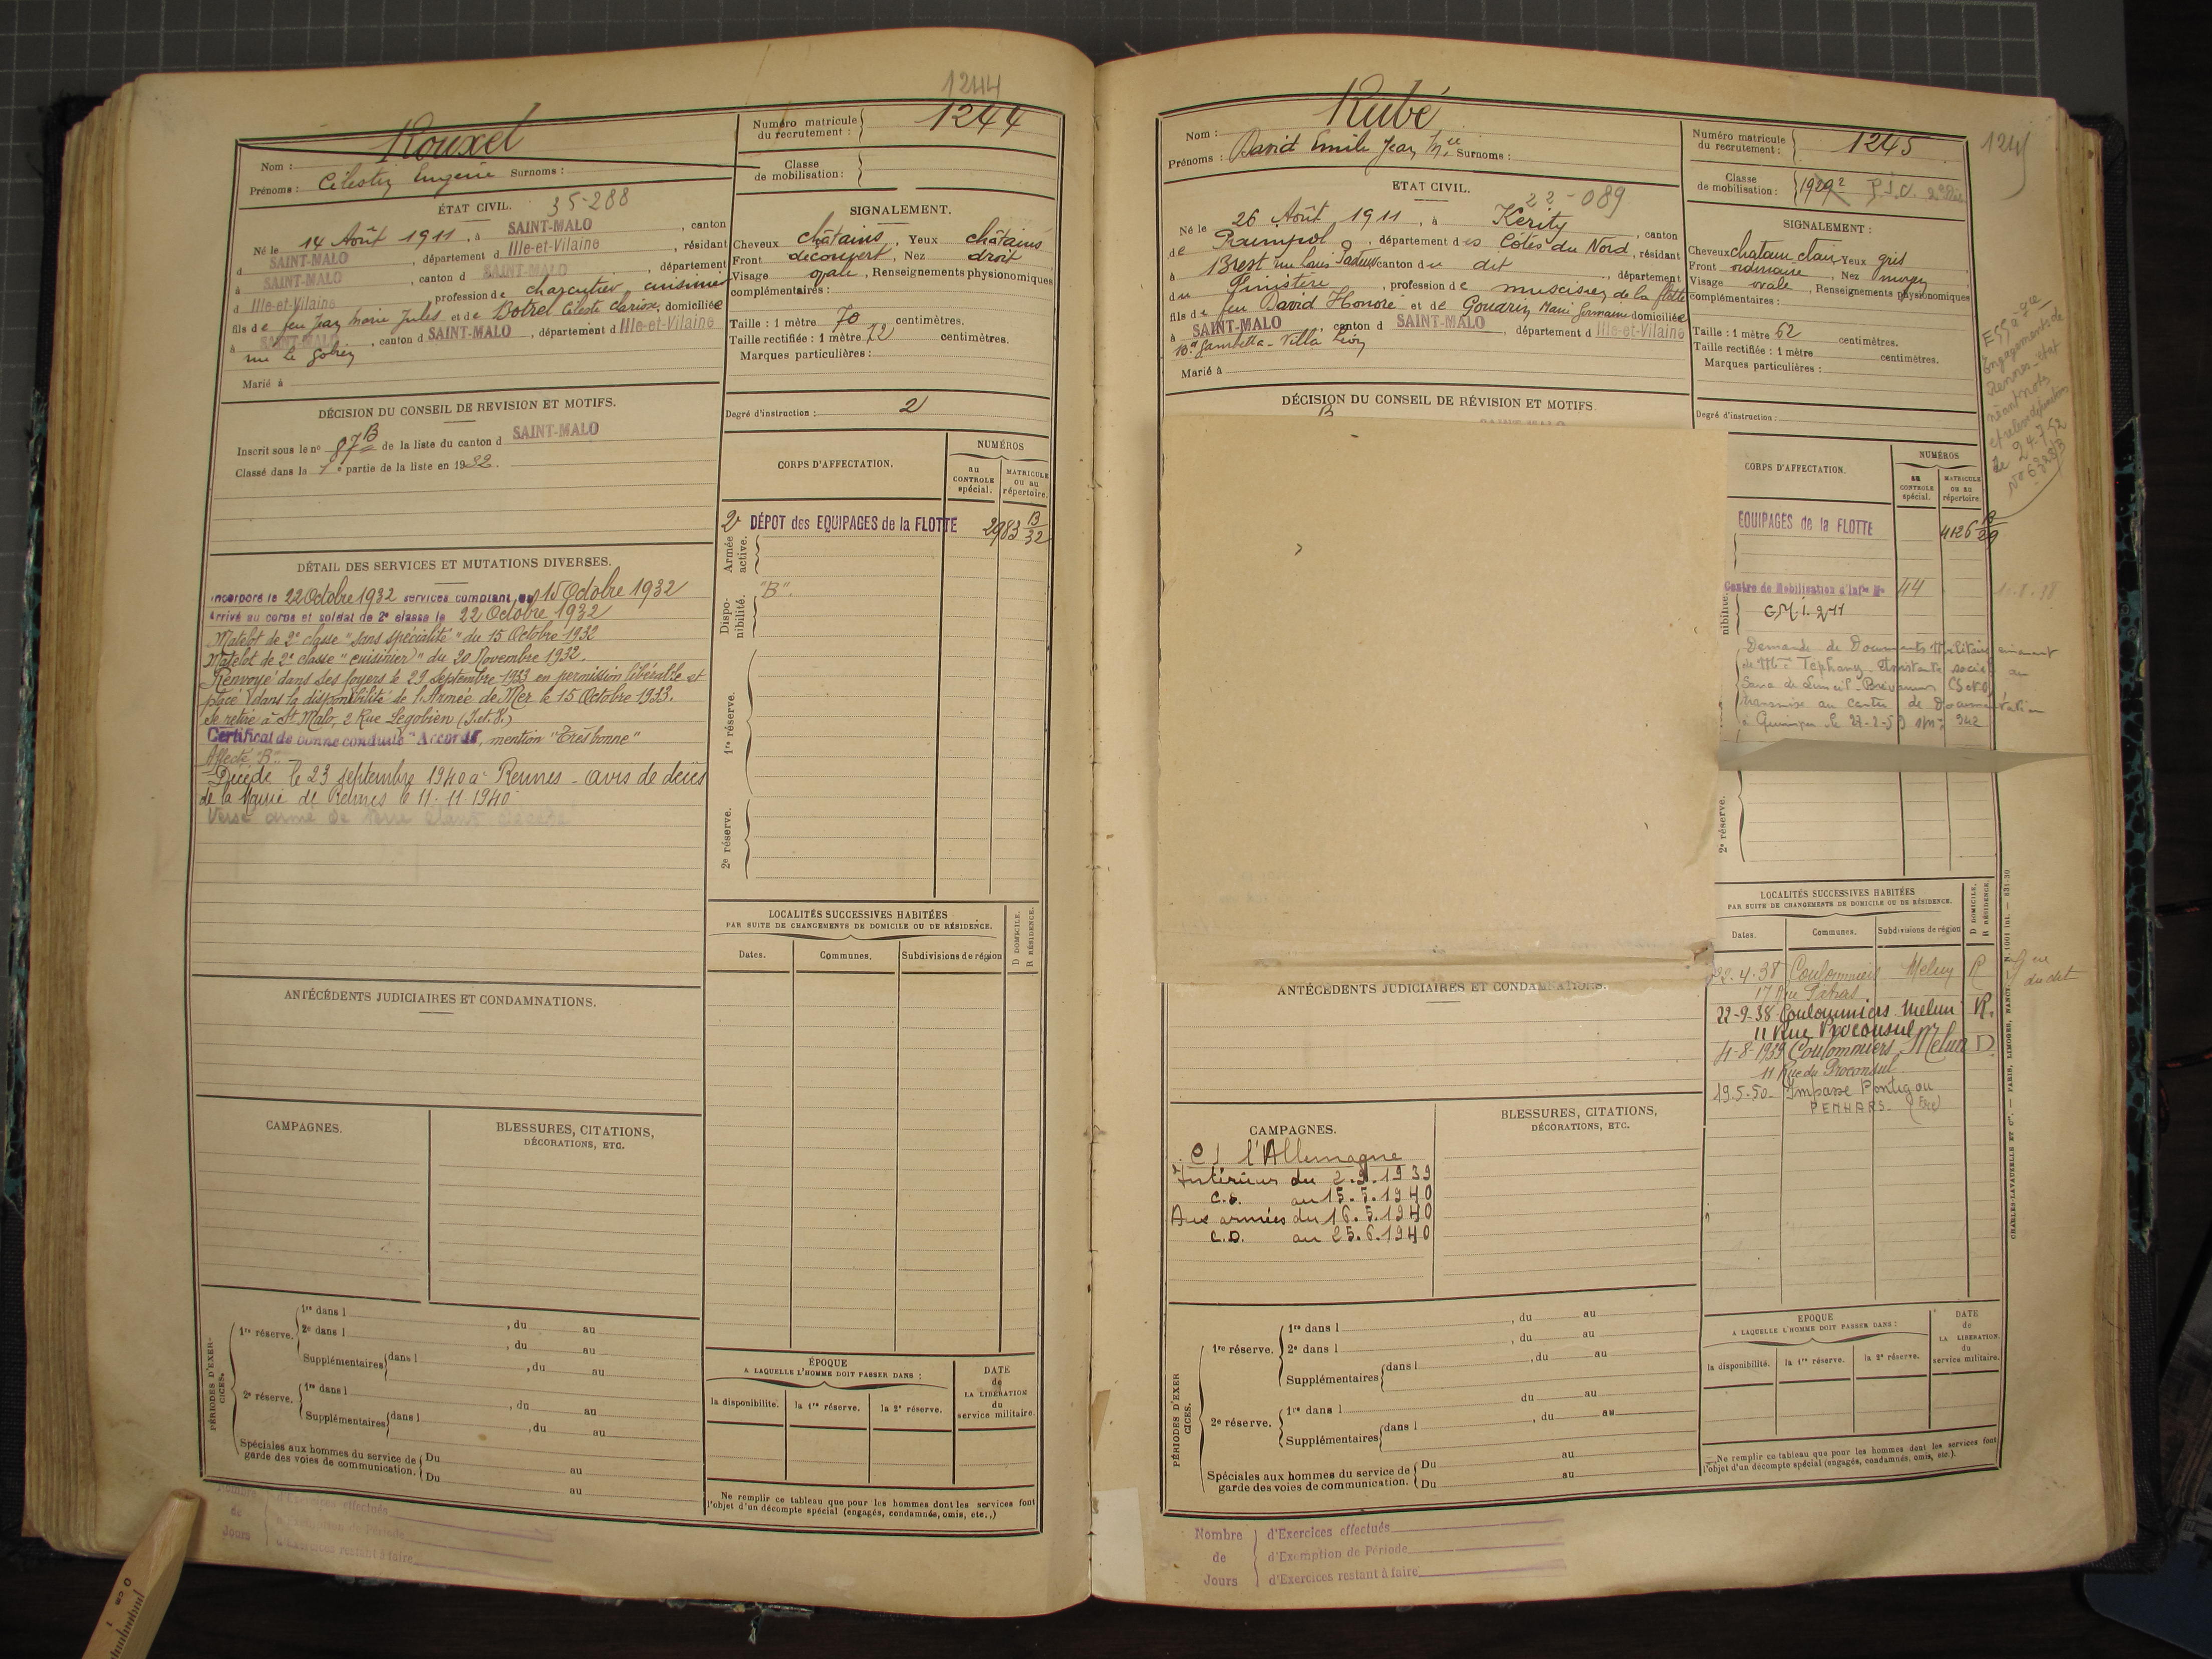 1244
Nom : Rouxel
Prénoms : Célestin Eugène Surnoms :
Numéro matricule du recrutement : 1244
Classe de mobilisation :
ÉTAT CIVIL. 35-288
Né le 14 Août 1911, à SAINT-MALO, canton
d SAINT-MALO, département d Ille-et-Vilaine, résidant
à SAINT-MALO, canton d SAINT-MALO, département
d Ille-et-Vilaine profession de charcutier cuisinier
fils de feu Jean Marie Jules et de Botrel Céleste, domiciliée
à SAINT-MALO, canton d SAINT-MALO, département d Ille-et-Vilaine
rue Le
Marié à
SIGNALEMENT.
Cheveux châtains, Yeux châtains
Front découvert, Nez droit
Visage ovale, Renseignements physionomiques
complémentaires :
Taille : 1 mètre 70 centimètres.
Taille rectifiée : 1 mètre 72 centimètres.
Marques particulières :
Degré d'instruction : 2
DÉCISION DU CONSEIL DE REVISION ET MOTIFS.
Inscrit sous le no 87 B de la liste du canton d SAINT-MALO
Classé dans la 1e partie de la liste en 1932.
DÉTAIL DES SERVICES ET MUTATIONS DIVERSES.
Incorporé le 22 Octobre 1932 services comptant du 15 Octobre 1932
Arrivé au corps et soldat de 2e classe le 22 Octobre 1932
Matelot de 2e classe "sans spécialité" du 15 Octobre 1932
Matelot de 2e classe "cuisinier" du 20 Novembre 1932.
Renvoyé dans ses foyers le 29 Septembre 1933 en permission libérable et
placé dans la disponibilité de l'Armée de Mer le 15 Octobre 1933.
Se retire à St Malo, 2 Rue Legobien (I. et V.)
Certificat de bonne conduite "Accordé", mention "Très bonne"
Affecté "B".
Décédé le 23 septembre 1940 à Rennes - avis de décès
de la Mairie de Rennes le 11-11-1940
Versé armé de terre étant décédé
CORPS D'AFFECTATION.
NUMÉROS
au CONTROLE spécial.
MATRICULE ou au répertoire.
Armée active.
2e DÉPOT des EQUIPAGES de la FLOTTE 2983 B/32
Disponibilité.
"B".
1re réserve.
2e réserve.
ANTÉCÉDENTS JUDICIAIRES ET CONDAMNATIONS.
LOCALITÉS SUCCESSIVES HABITÉES
PAR SUITE DE CHANGEMENTS DE DOMICILE OU DE RÉSIDENCE.
D DOMICILE.
R RÉSIDENCE.
Dates. Communes. Subdivisions de région
CAMPAGNES.
BLESSURES, CITATIONS,
DÉCORATIONS, ETC.
PÉRIODES D'EXERCICES.
1re réserve. 1re dans l , du au
2e dans l , du au
Supplémentaires dans l , du au
2e réserve. 1re dans l , du au
Supplémentaires dans l , du au
Spéciales aux hommes du service de garde des voies de communication. Du au
Du au
ÉPOQUE
A LAQUELLE L'HOMME DOIT PASSER DANS :
la disponibilité. la 1re réserve. la 2e réserve.
DATE de LA LIBÉRATION du service militaire.
Ne remplir ce tableau que pour les hommes dont les services font
l'objet d'un décompte spécial (engagés, condamnés, omis, etc.,)
Nombre de Jours
d'Exercices effectués
d'Exemption de Période
d'Exercices restant à faire
Nom : Rubé
Prénoms : David Emile Jean Mie Surnoms :
Numéro matricule du recrutement : 1245
1245
Classe de mobilisation : 1929
ETAT CIVIL.
22-089
Né le 26 Août 1911, à Kerity, canton
de Paimpol, département des Côtes du Nord, résidant
à Brest rue Louis Pasteur canton du dit, département
du Finistère, profession de musicien de la flotte
fils de feu David Honoré et de Gouarin Marie Germaine domiciliée
à SAINT-MALO, canton d SAINT-MALO, département d Ille-et-Vilaine
Bd Gambetta - Villa
Marié à
SIGNALEMENT :
Cheveux chatain clair Yeux gris
Front ordinaire, Nez moyen
Visage ovale, Renseignements physionomiques
complémentaires :
Taille : 1 mètre 62 centimètres.
Taille rectifiée : 1 mètre centimètres.
Marques particulières :
Degré d'instruction :
Engagements de
Rennes - état
néant
Le 24.7.52
DÉCISION DU CONSEIL DE RÉVISION ET MOTIFS.
B
CORPS D'AFFECTATION.
NUMÉROS
au CONTROLE spécial.
MATRICULE ou au répertoire.
EQUIPAGES de la FLOTTE 4126 B/29
Centre de Mobilisation d'Infie No 44
G.M.I. 211
Demande de Documents Militaires émanant
de Mlle Tephany Assistante sociale au
Sana de Limeil-Brévannes (S et O)
transmise au centre de Documentation
à Quimper le
2e réserve.
LOCALITÉS SUCCESSIVES HABITÉES
PAR SUITE DE CHANGEMENTS DE DOMICILE OU DE RÉSIDENCE.
D DOMICILE.
R RÉSIDENCE.
Dates. Communes. Subdivisions de région
22.4.38 Coulommiers Melun R
22-9-38 Coulommiers Melun R.
11 Rue Proconsul
4-8-1939 Coulommiers Melun D.
11 Rue du Proconsul
19.5.50. Impasse Pontigou
PENHARS.
ANTÉCÉDENTS JUDICIAIRES ET CONDAMNATIONS.
CAMPAGNES.
C/ l'Allemagne
Intérieur du 2.9.1939
C.S. au 15.5.1940
Aux armées du 16.5.1940
C.D. au 25.6.1940
BLESSURES, CITATIONS,
DÉCORATIONS, ETC.
PÉRIODES D'EXERCICES.
1re réserve. 1re dans l , du au
2e dans l , du au
Supplémentaires dans l , du au
2e réserve. 1re dans l du au
Supplémentaires dans l , du au
Spéciales aux hommes du service de garde des voies de communication. Du au
Du au
EPOQUE
A LAQUELLE L'HOMME DOIT PASSER DANS :
la disponibilité. la 1re réserve. la 2e réserve.
DATE de LA LIBERATION du service militaire.
Ne remplir ce tableau que pour les hommes dont les services font
l'objet d'un décompte spécial (engagés, condamnés, omis, etc.).
CHARLES-LAVAUZELLE ET Cie. — PARIS, LIMOGES, NANCY.
Nombre de Jours
d'Exercices effectués
d'Exemption de Période
d'Exercices restant à faire